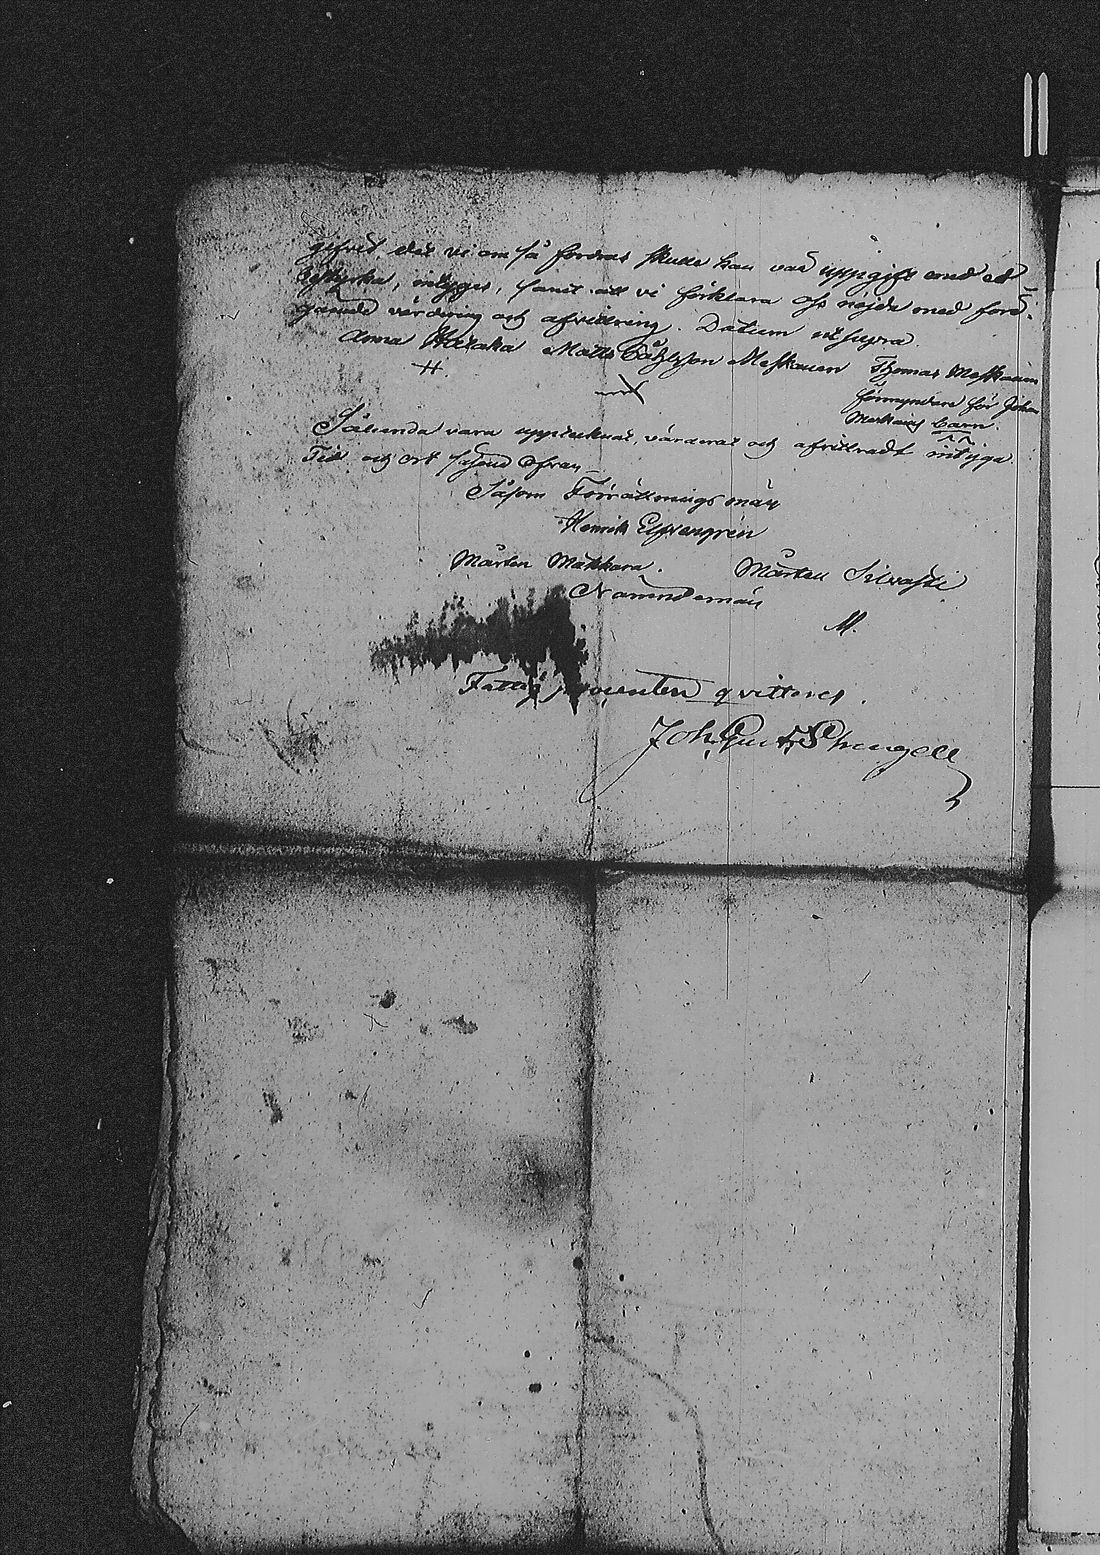 gifvit, det vi om så fordras skulle kan vår uppgift med ed
bestyrka, intyges, samt att vi förklara oss nöjda med före-
gående värdering och afvittring. Datum utsupra.
Anna Matts Meskanen Thomas Meskanen
förmyndare för Johan
barn.
Sålunda vara upptecknat, värderat och afvittradt intyga.
Tid och ort såsom ofvan
Såsom Förrättningsmän
Henrik
Mårten Makkara. Mårten Silvasti
Nämndemän
M.
Fattigprocenten qvitteras.
Joh. Gust.